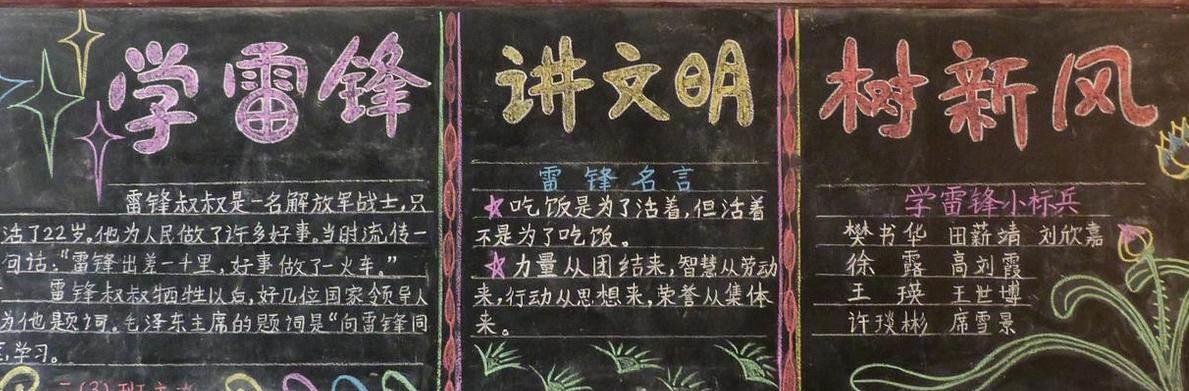 学雷锋
雷锋叔叔是一名解放军战士,只
活了22岁。他为人民做了许多好事。当时流传一
句话:“雷锋出差一千里,好事做了一火车。”
雷锋叔叔牺牲以后,好几位国家领导人
为他题词。毛泽东主席的题词是“向雷锋同
学习。
二(3)班
讲文明
雷锋名言
吃饭是为了活着,但活着
不是为了吃饭。
力量从团结来,智慧从劳动
来,行动从思想来,荣誉从集体
来。
树新风
学雷锋小标兵
樊书华 田薪靖 刘欣嘉
徐露 高刘霞
王瑛 王世博
许琰彬 席雪景